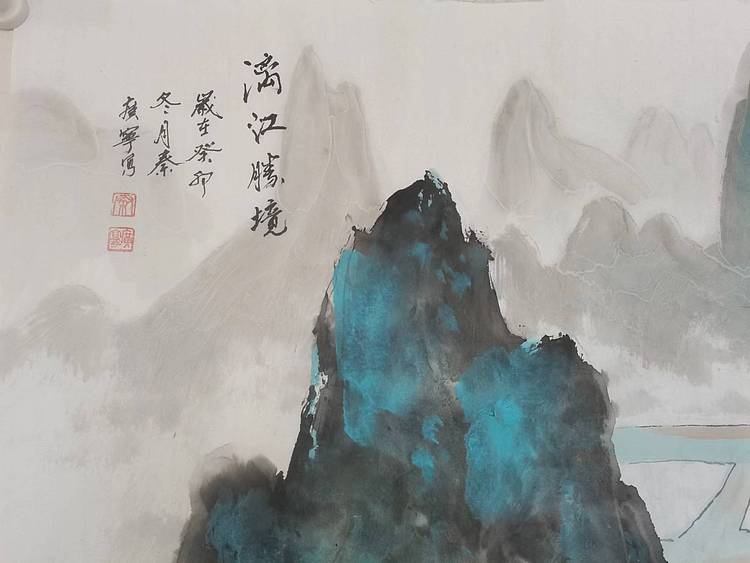 漓江勝境
歲在癸卯
冬月秦
廣寧寫